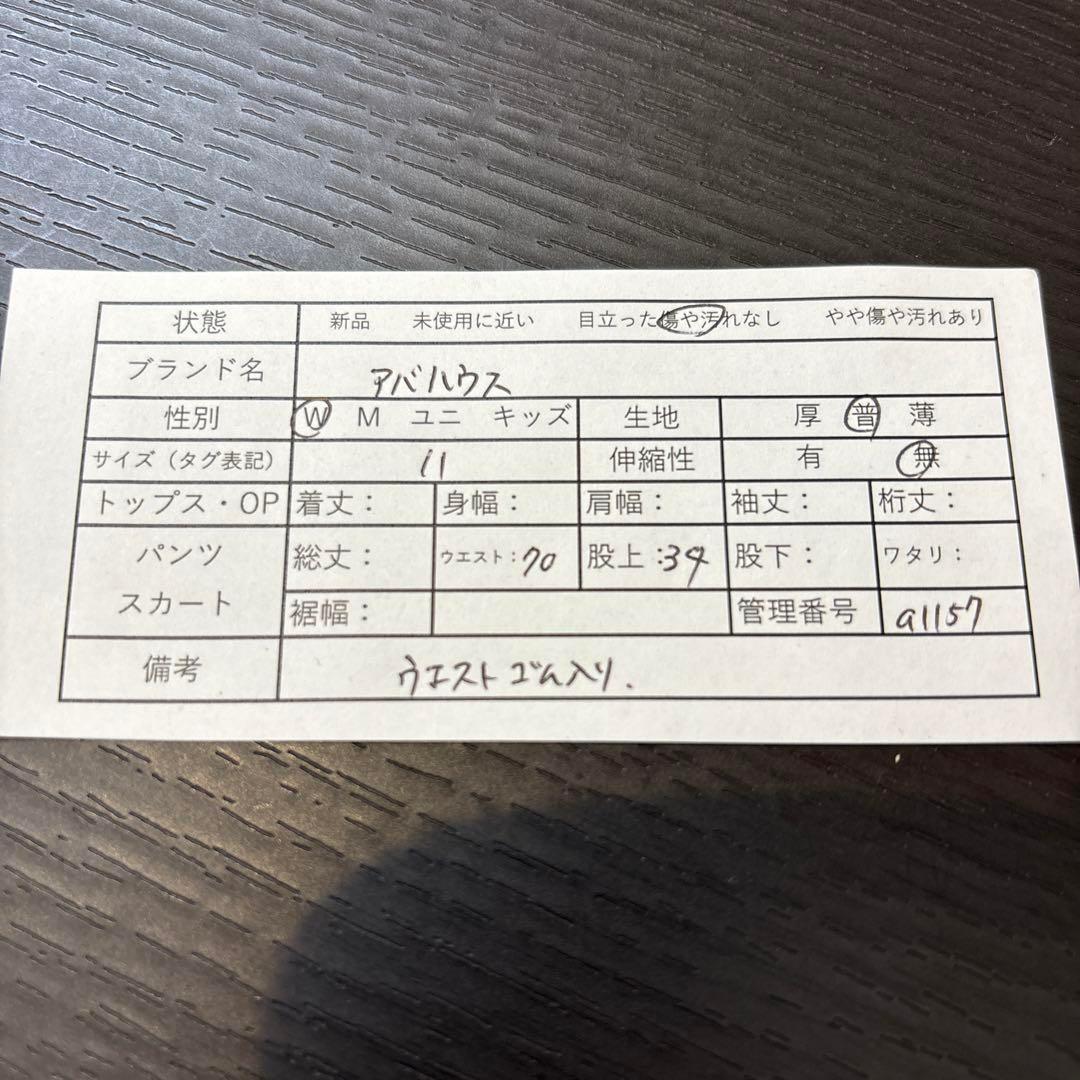 状態 新品 未使用に近い 目立った傷や汚れなし やや傷や汚れあり
ブランド名 アバハウス
性別 W M ユニ キッズ 生地 厚 普 薄
サイズ（タグ表記） 11 伸縮性 有 無
トップス・OP 着丈： 身幅： 肩幅： 袖丈： 裄丈：
パンツ 総丈： ウエスト：70 股上：34 股下： ワタリ：
スカート 裾幅： 管理番号 a1157
備考 ウエストゴム入り.